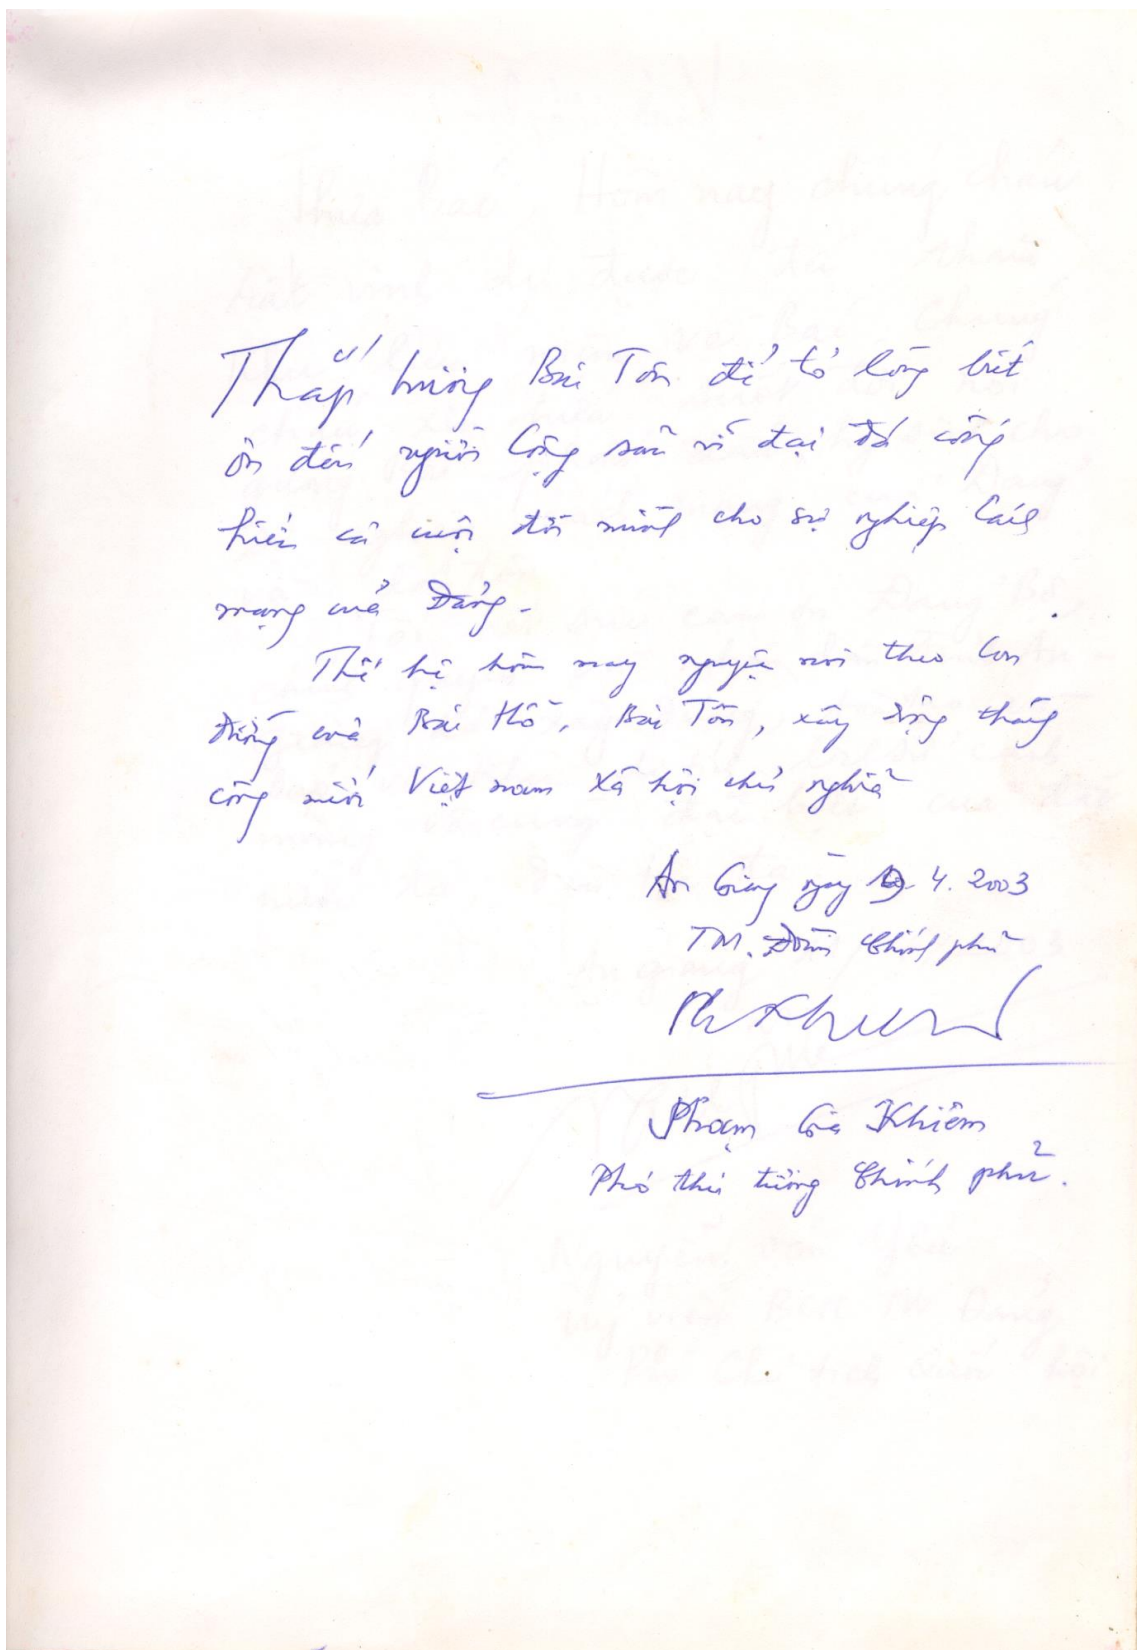 Thắp hương Bác Tôn để tỏ lòng biết
ơn đến người Cộng sản vĩ đại đã cống
hiến cả cuộc đời mình cho sự nghiệp Cách
mạng của Đảng.
Thế hệ hôm nay nguyện noi theo con
đường của Bác Hồ, Bác Tôn, xây dựng thành
công nước Việt nam Xã hội chủ nghĩa
An Giang ngày 4.2003
TM. Đoàn Chính phủ
Phạm Gia Khiêm
Phó thủ tướng Chính phủ.